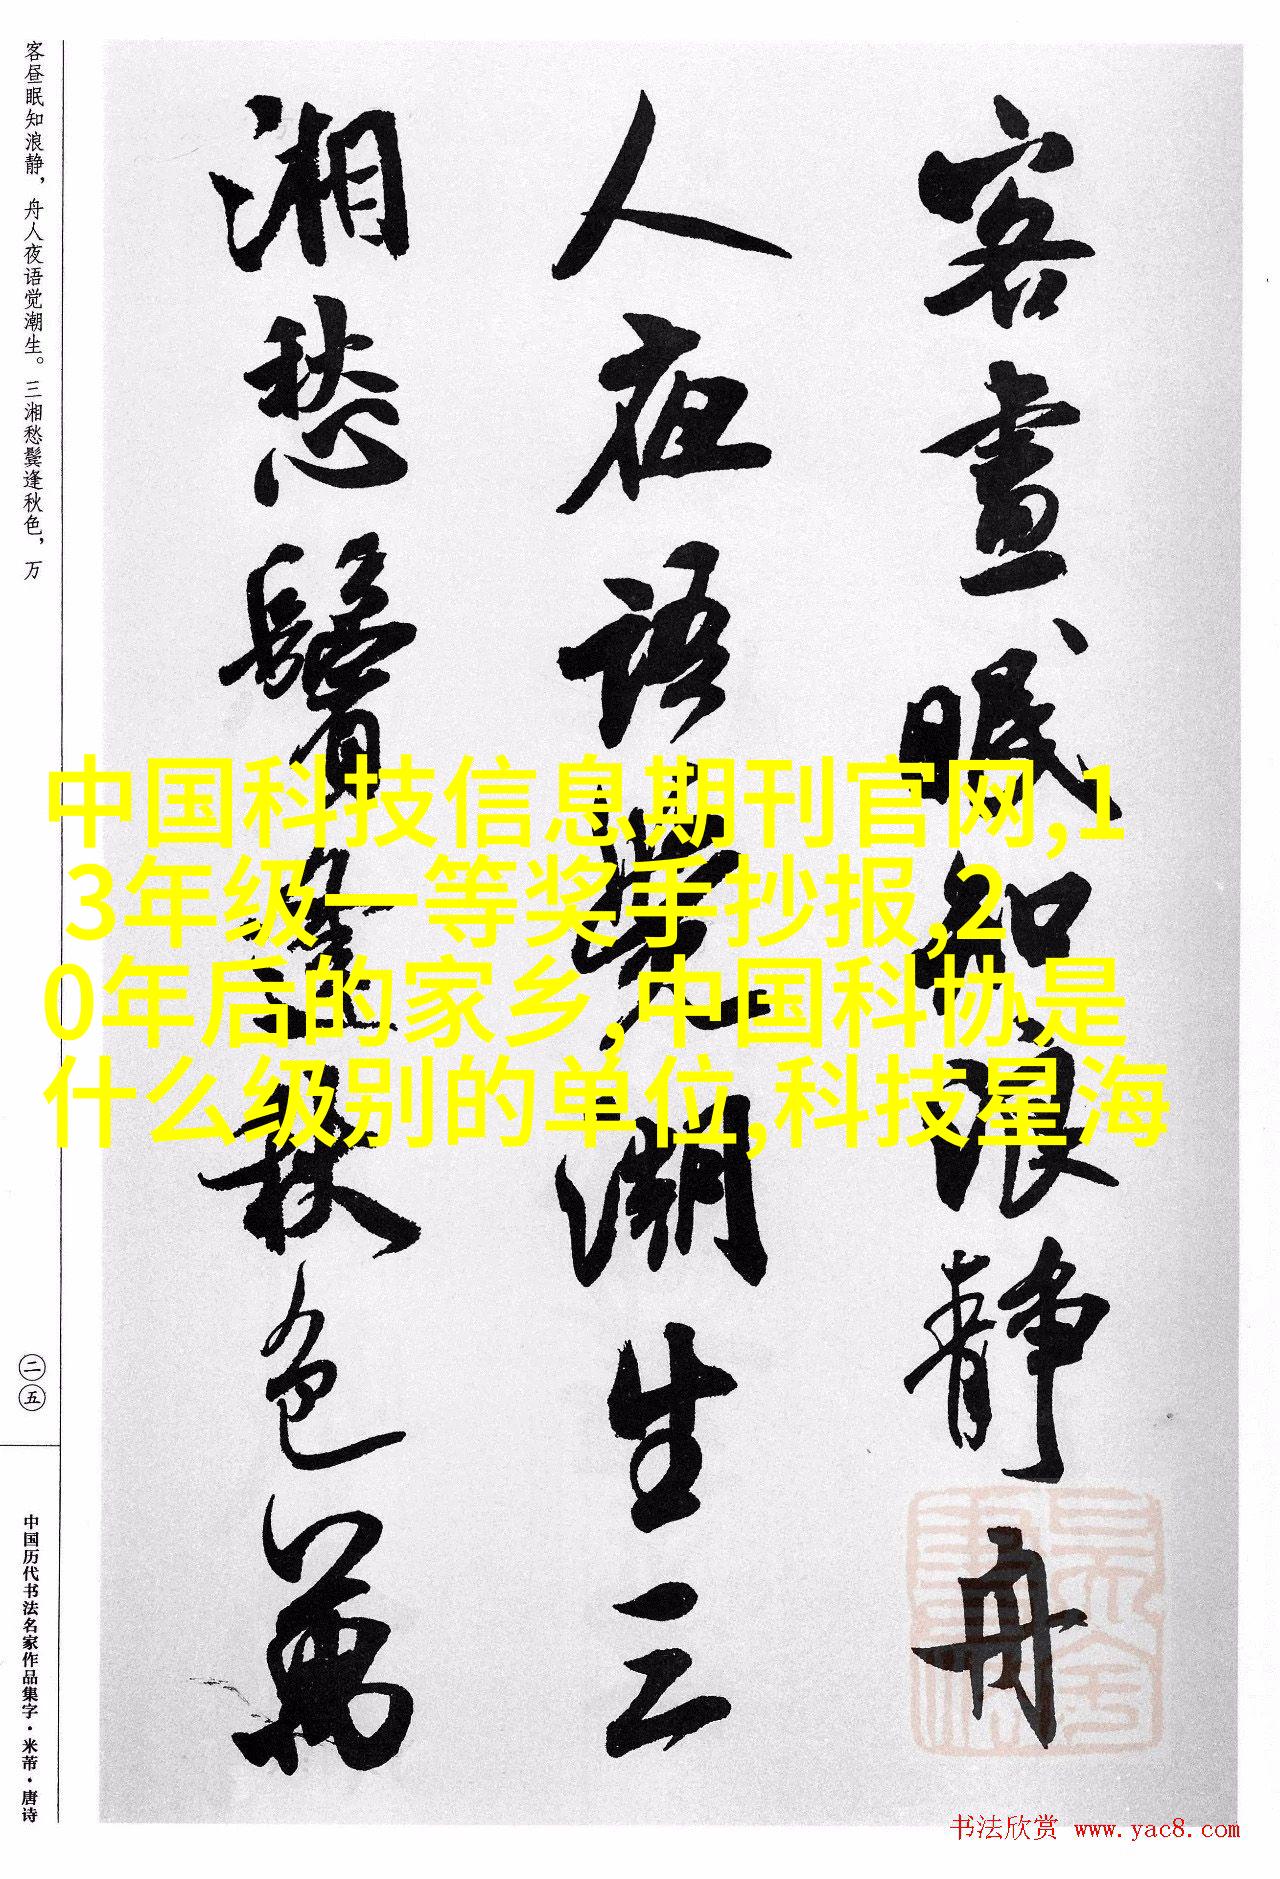 客昼眠知浪静，舟人夜语觉潮生。三湘愁鬓逢秋色，万
客晝眠知浪靜舟
人夜語覺潮生三
湘愁鬢逢秋色萬
中国科技信息期刊官网,1
3年级一等奖手抄报,2
0年后的家乡,中国科协是
什么级别的单位,科技星海
二五
中国历代书法名家作品集字·米芾·唐诗
书法欣赏 www.yac8.com